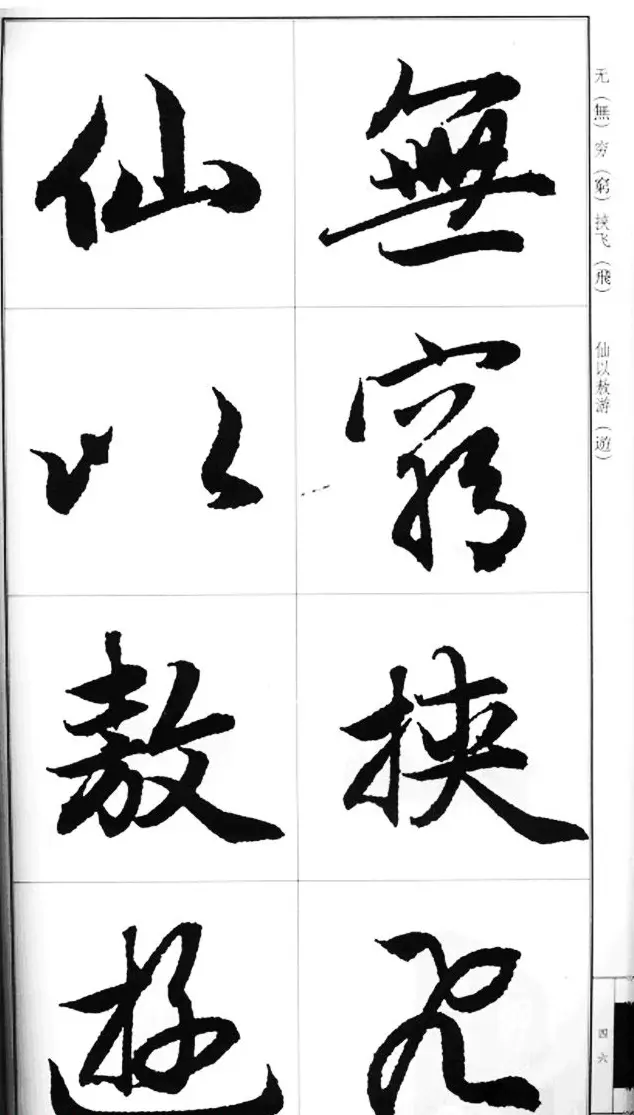 無窮挾飛
仙以敖遊
无（無）穷（窮）挟飞（飛）
仙以敖游（遊）
四六